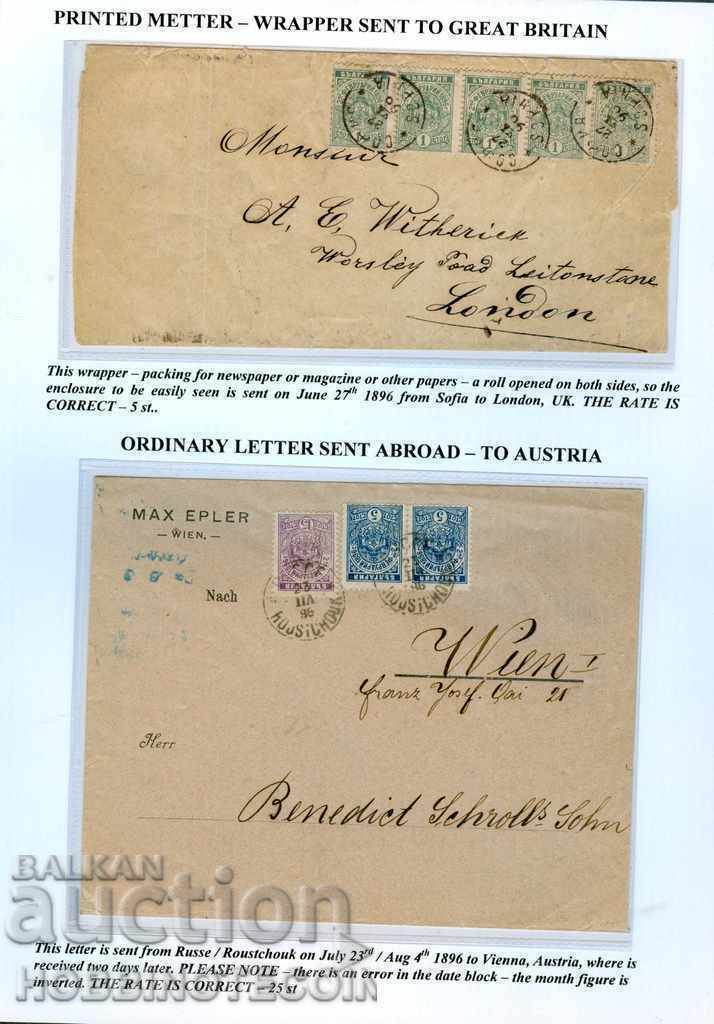 PRINTED METTER – WRAPPER SENT TO GREAT BRITAIN
БЪЛГАРИЯ
1 1 1 1
Monsieur
A. E. Witherick
Worsley Road Leitonstone
London
This wrapper – packing for newspaper or magazine or other papers – a roll opened on both sides, so the
enclosure to be easily seen is sent on June 27th 1896 from Sofia to London, UK. THE RATE IS
CORRECT – 5 st..
ORDINARY LETTER SENT ABROAD – TO AUSTRIA
MAX EPLER
– WIEN, –
15 5 5
Nach
ROUSTCHOUK
Wien I
Franz Josef. Qai 21
Herr
Benedict Schroll's Sohn
BALKAN
auction
HOBBINOTECOIN
This letter is sent from Russe / Roustchouk on July 23rd / Aug 4th 1896 to Vienna, Austria, where is
received two days later. PLEASE NOTE – there is an error in the date block – the month figure is
inverted. THE RATE IS CORRECT – 25 st